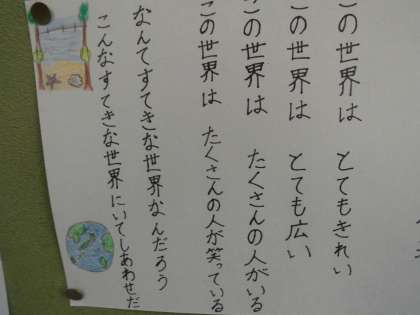 この世界は とてもきれい
この世界は とても広い
この世界は たくさんの人がいる
この世界は たくさんの人が笑っている
なんてすてきな世界なんだろう
こんなすてきな世界にいてしあわせだ